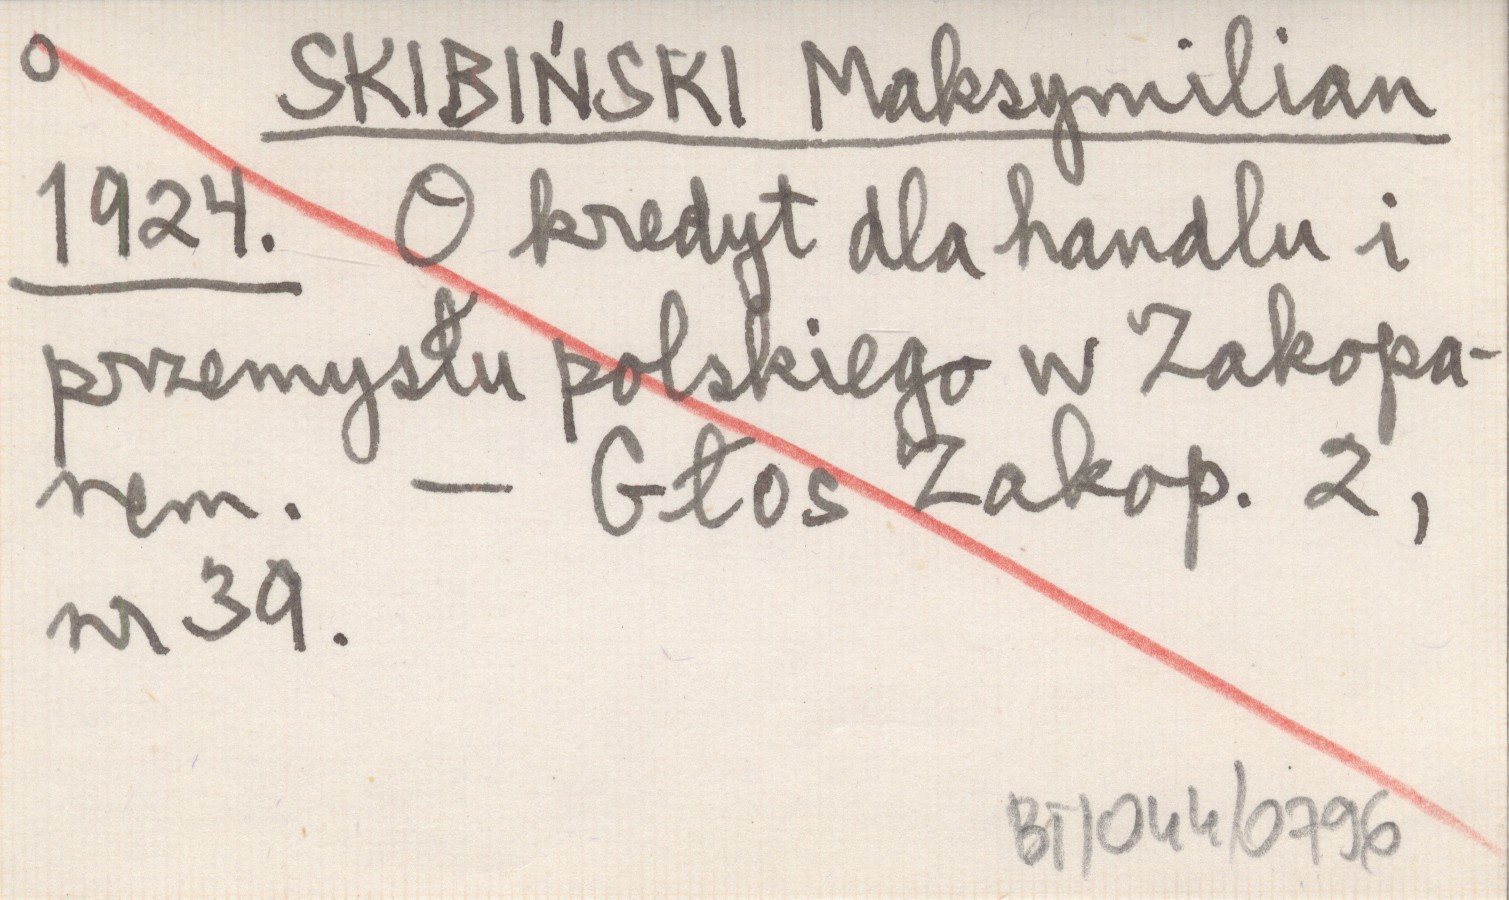 o SKIBIŃSKI Maksymilian
1924. O kredyt dla handlu i
przemysłu polskiego w Zakopa-
nem. — Głos Zakop. 2,
nr 39.
BT/044/0796